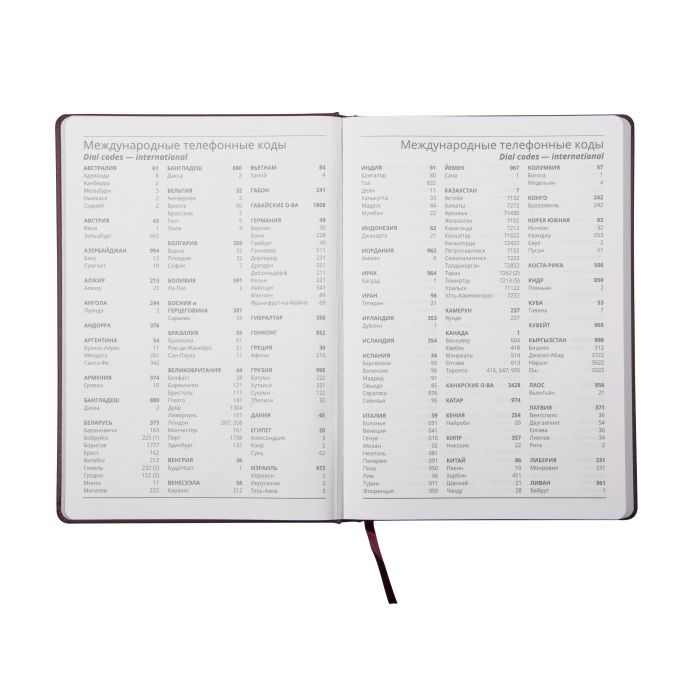 Международные телефонные коды
Dial codes — international
АВСТРАЛИЯ 61
Аделаида 8
Канберра 2
Мельбурн 3
Ньюкасл 2
Сидней 2
АВСТРИЯ 43
Вена 1
Зальцбург 662
АЗЕРБАЙДЖАН 994
Баку 12
Сумгаит 18
АЛЖИР 213
Алжир 21
АНГОЛА 244
Луанда 2
АНДОРРА 376
АРГЕНТИНА 54
Буэнос-Айрес 11
Мендоса 261
Санта-Фе 342
АРМЕНИЯ 374
Ереван 10
БАНГЛАДЕШ 880
Дакка 2
БЕЛАРУСЬ 375
Барановичи 163
Бобруйск 225 (1)
Борисов 1777
Брест 162
Витебск 212
Гомель 232 (2)
Гродно 152 (2)
Минск 17
Могилев 222
БАНГЛАДЕШ 880
Дакка 2
БЕЛЬГИЯ 32
Антверпен 3
Брюгге 50
Брюссель 2
Гент 9
Льеж 4
БОЛГАРИЯ 359
Варна 52
Пловдив 32
София 2
БОЛИВИЯ 591
Ла-Пас 2
БОСНИЯ и
ГЕРЦЕГОВИНА 387
Сараево 33
БРАЗИЛИЯ 55
Бразилиа 61
Рио-де-Жанейро 21
Сан-Паулу 11
ВЕЛИКОБРИТАНИЯ 44
Белфаст 28
Бирмингем 121
Бристоль 117
Глазго 141
Дувр 1304
Ливерпуль 151
Лондон 207, 208
Манчестер 161
Перт 1738
Эдинбург 131
ВЕНГРИЯ 36
Будапешт 1
ВЕНЕСУЭЛА 58
Каракас 212
ВЬЕТНАМ 84
Ханой 4
ГАБОН 241
ГАВАЙСКИЕ О-ВА 1808
ГЕРМАНИЯ 49
Берлин 30
Бонн 228
Гамбург 40
Ганновер 511
Дортмунд 231
Дрезден 351
Дюссельдорф 211
Кельн 221
Лейпциг 341
Мюнхен 89
Франкфурт-на-Майне 69
ГИБРАЛТАР 350
ГОНКОНГ 852
ГРЕЦИЯ 30
Афины 210
ГРУЗИЯ 995
Батуми 222
Кутаиси 331
Сухуми 122
Тбилиси 32
ДАНИЯ 45
ЕГИПЕТ 20
Александрия 3
Каир 2
Суэц 62
ИЗРАИЛЬ 972
Иерихон 2
Иерусалим 2
Тель-Авив 3
Международные телефонные коды
Dial codes — international
ИНДИЯ 91
Бангалор 80
Гоа 832
Дели 11
Калькутта 33
Мадрас 44
Мумбаи 22
ИНДОНЕЗИЯ 62
Джакарта 21
ИОРДАНИЯ 962
Амман 6
ИРАК 964
Багдад 1
ИРАН 98
Тегеран 21
ИРЛАНДИЯ 353
Дублин 1
ИСЛАНДИЯ 354
ИСПАНИЯ 34
Барселона 93
Валенсия 96
Мадрид 91
Овьедо 85
Сарагоса 976
Севилья 95
ИТАЛИЯ 39
Болонья 051
Венеция 041
Генуя 010
Милан 02
Неаполь 081
Палермо 091
Пиза 050
Рим 06
Турин 011
Флоренция 055
ЙЕМЕН 967
Сана 1
КАЗАХСТАН 7
Актобе 7132
Алматы 7272
Аркалык 71430
Жезказган 7102
Караганда 7212
Кокшетау 71622
Кызылорда 72422
Петропавловск 7152
Семипалатинск 7222
Талдыкорган 72822
Тараз 7262 (2)
Темиртау 7213 (5)
Уральск 71122
Усть-Каменогорск 7232
КАМЕРУН 237
Яунде 237
КАНАДА 1
Ванкувер 604
Квебек 418
Монреаль 514
Оттава 613
Торонто 416, 647, 905
КАНАРСКИЕ О-ВА 3428
КАТАР 974
КЕНИЯ 254
Найроби 20
КИПР 357
Никозия 22
КИТАЙ 86
Пекин 10
Харбин 451
Шанхай 21
Чэнду 28
КОЛУМБИЯ 57
Богота 1
Медельин 4
КОНГО 242
Браззавиль 242
КОРЕЯ ЮЖНАЯ 82
Инчхон 32
Кванджу 053
Сеул 2
Пусан 51
КОСТА-РИКА 506
КНДР 850
Пхеньян 2
КУБА 53
Гавана 7
КУВЕЙТ 965
КЫРГЫЗСТАН 996
Бишкек 312
Джалал-Абад 3722
Нарын 3522
Ош 3222
ЛАОС 856
Вьентьян 21
ЛАТВИЯ 371
Даугавпилс 54
Елгава 30
Лиепая 34
Рига 2
ЛИБЕРИЯ 231
Монровия 231
ЛИВАН 961
Бейрут 1